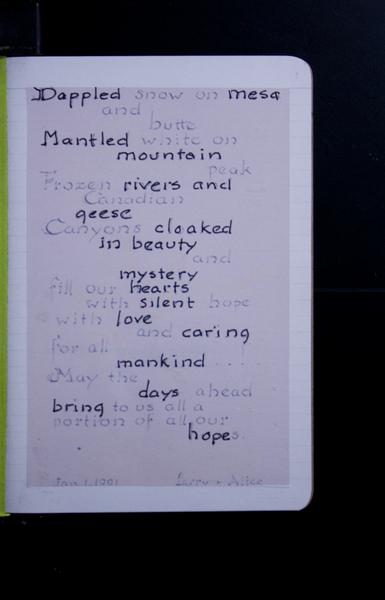 Dappled snow on mesa
and
butte
Mantled white on
mountain
peak
Frozen rivers and
Canadian
geese
Canyons cloaked
in beauty
and
mystery
fill our hearts
with silent hope
with love
and caring
for all
mankind....
May the
days ahead
bring to us all a
portion of all our
hopes.
Jan 1, 1991 Larry + Alice